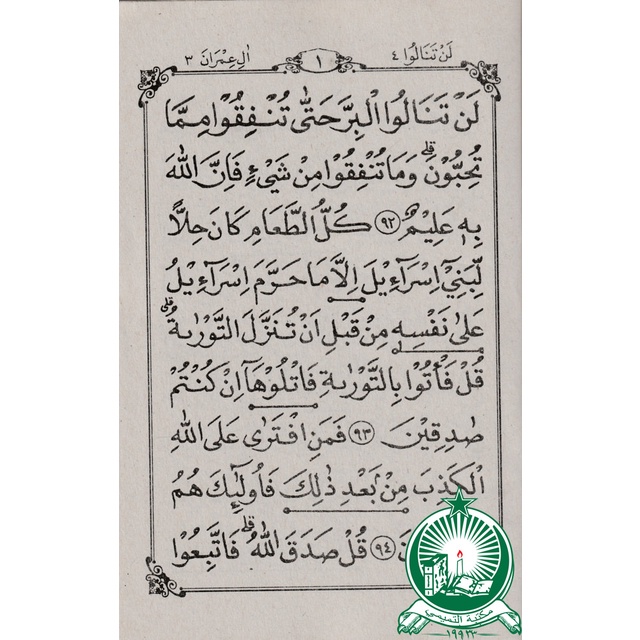 لَنْ تَنَالُوا ٤ ١ اٰلِ عِمْرَانَ ٣
لَنْ تَنَالُوا الْبِرَّ حَتّٰى تُنْفِقُوْا مِمَّا
تُحِبُّوْنَ ۗ وَمَا تُنْفِقُوْا مِنْ شَيْءٍ فَاِنَّ اللّٰهَ
بِهٖ عَلِيْمٌ ﴿٩٢﴾ كُلُّ الطَّعَامِ كَانَ حِلًّا
لِّبَنِيْٓ اِسْرَآءِيْلَ اِلَّا مَا حَرَّمَ اِسْرَآءِيْلُ
عَلٰى نَفْسِهٖ مِنْ قَبْلِ اَنْ تُنَزَّلَ التَّوْرٰىةُ ۗ
قُلْ فَأْتُوْا بِالتَّوْرٰىةِ فَاتْلُوْهَآ اِنْ كُنْتُمْ
صٰدِقِيْنَ ﴿٩٣﴾ فَمَنِ افْتَرٰى عَلَى اللّٰهِ
الْكَذِبَ مِنْۢ بَعْدِ ذٰلِكَ فَاُولٰٓئِكَ هُمُ
﴿٩٤﴾ قُلْ صَدَقَ اللّٰهُ ۗ فَاتَّبِعُوْا
مكتبة التميمي
١٩٢٣